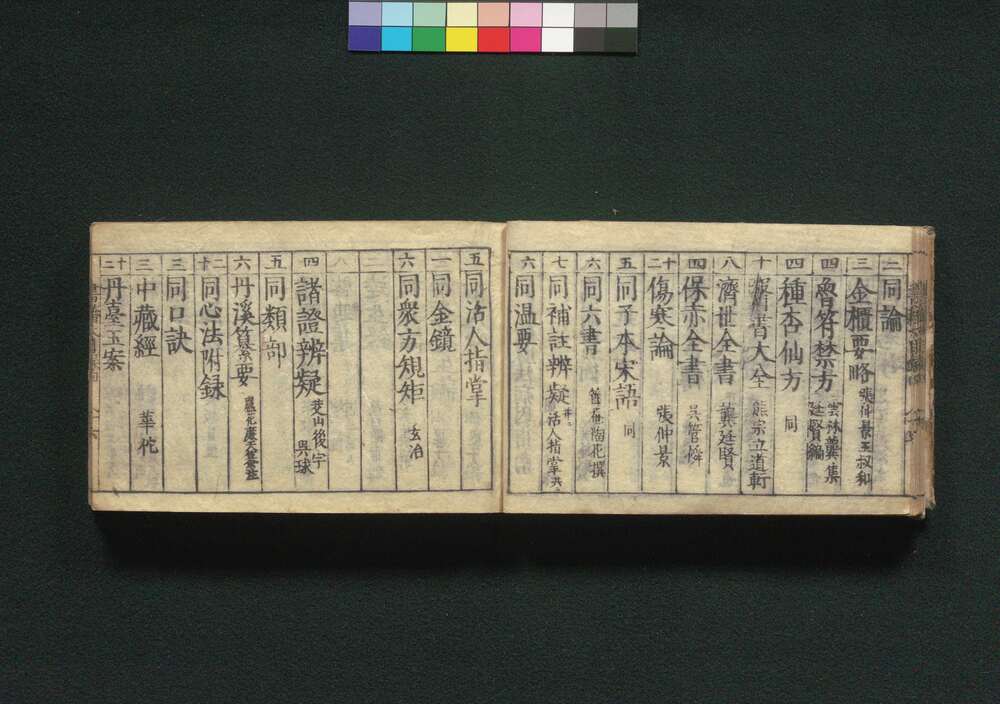 二 同論
三 金櫃要略 張仲景王叔和
四 魯符禁方 雲林龔集
廷賢編
四 種杏仙方 同
十 醫書大全 熊宗立道軒
八 濟世全書 龔廷賢
四 保赤全書 吳管
二十 傷寒論 張仲景
五 同子本宋語 同
六 同六書 陶花撰
七 同補註辨疑 并活人指掌共
六 同温要
五 同活人指掌
一 同金鏡
六 同衆方規矩 玄冶
四 諸證辨疑 茭山後学
吳球
五 同類部
六 丹溪纂要
二十 同心法附録
三 同口訣
三 中藏經 華佗
二十 丹臺玉案